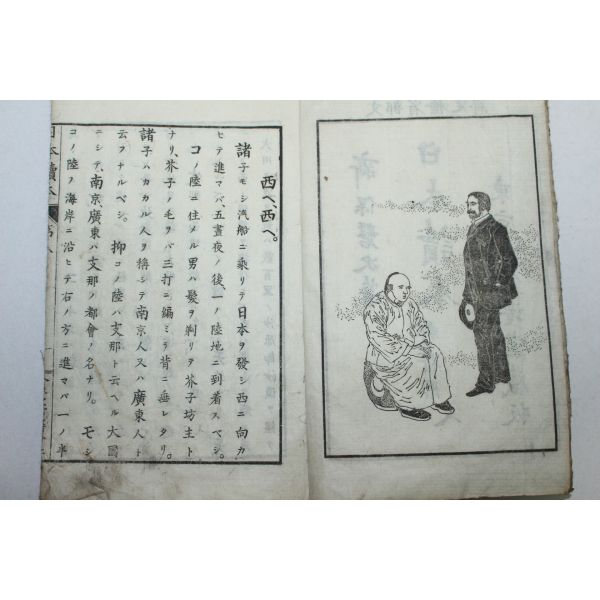 西ヘ、西ヘ。
諸子モシ汽船ニ乘リテ日本ヲ發シ西ニ向カ
ヒテ進マバ、五晝夜ノ後、一ノ陸地ニ到着スベシ。
コノ陸ニ住メル男ハ髮ヲ剃リテ芥子坊主ト
ナリ、芥子ノ毛ヲバ三打ニ編ミテ背ニ垂レタリ。
諸子ハカカル人ヲ稱シテ南京人又ハ廣東人ト
云フナルベシ。抑コノ陸ハ支那ト云ヘル大國
ニシテ、南京、廣東ハ支那ノ都會ノ名ナリ。モシ
コノ陸ノ海岸ニ沿ヒテ右ノ方ニ進マバ一ノ半
日本讀本